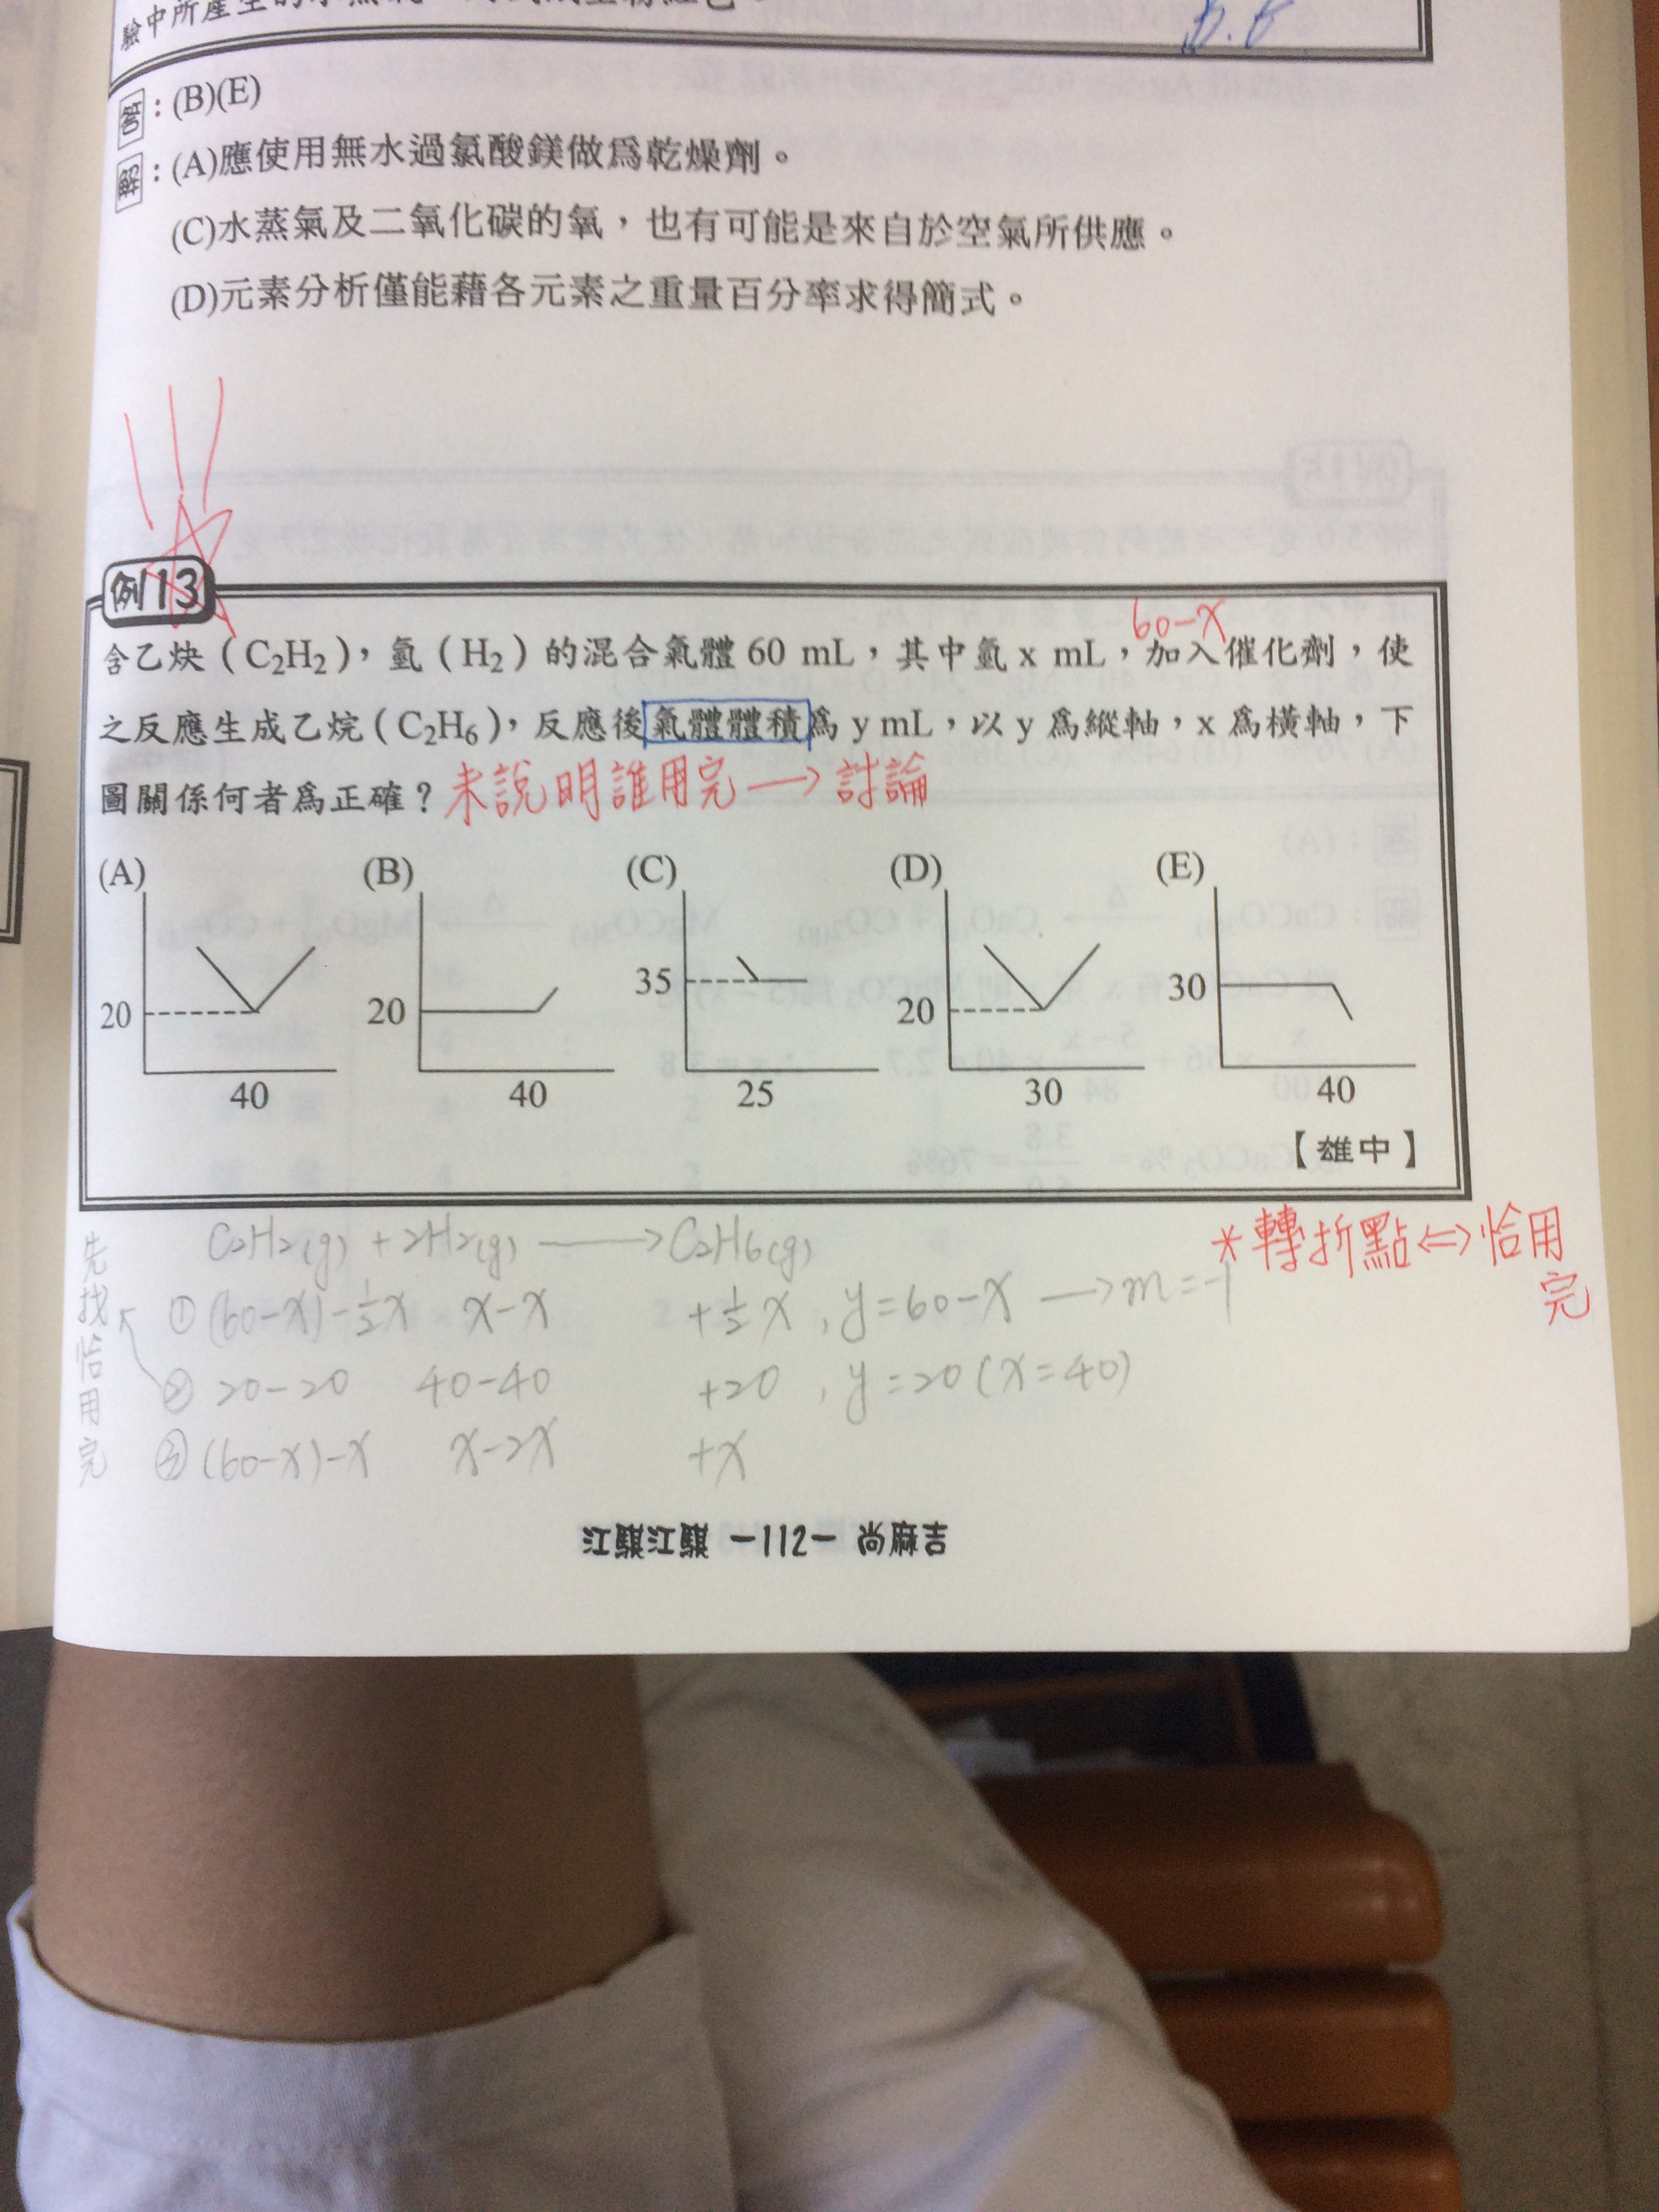 驗中所產生的
B.E
答：(B)(E)
解：(A)應使用無水過氯酸鎂做為乾燥劑。
(C)水蒸氣及二氧化碳的氧，也有可能是來自於空氣所供應。
(D)元素分析僅能藉各元素之重量百分率求得簡式。
例13
60-x
含乙炔（C₂H₂），氫（H₂）的混合氣體 60 mL，其中氫 x mL，加入催化劑，使
之反應生成乙烷（C₂H₆），反應後氣體體積為 y mL，以 y 為縱軸，x 為橫軸，下
圖關係何者為正確？ 未說明誰用完→討論
(A) (B) (C) (D) (E)
20 20 35 20 30
40 40 25 30 40
【雄中】
*轉折點⇔恰用完
先找恰用完
C₂H₂(g) + 2H₂(g) → C₂H₆(g)
① (60-x)-½x x-x +½x , y=60-x → m=-1
② 20-20 40-40 +20 , y=20(x=40)
③ (60-x)-x x-2x +x
江騏江騏 -112- 尚麻吉